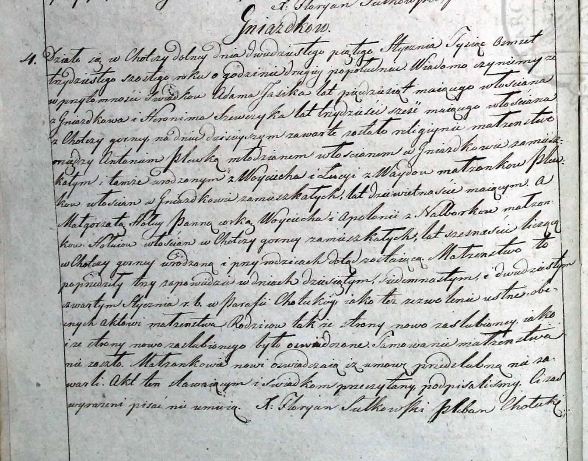 X. Floryan Sulkowski
Gniazdkow.
4. Działo się w Chotczy dolny dnia dwudziestego piątego Stycznia Tysiąc Osmset
trzydziestego szostego roku o godzinie drugiy popołudniu. Wiadomo czyniemy że
w przytomności Swiadkow Adama Jasika lat pięcdziesiąt maiącego włoscianina
z Gniazdkowa i Hieronima Szewczyka lat trzydzieści sześć maiącego włoscianina
z Chotczy gorny na dniu dzisieyszym zawarte zostało religiyne małżenstwo
między Antonim Pluską młodzianem włoscianem w Gniazdkowie zamiesz-
kałym i tamże urodzonym z Woyciecha i Łucyi z Waydow małżonkow Plus-
kow włościan w Gniazdkowie zamieszkałych, lat dziewietnaście maiącym. A
Małgorzatą Panną corką Woyciecha i Apolonii z małżon-
kow włościan w Chotczy gorny zamieszkałych, lat szesnaście liczącą
w Chotczy gorney urodzoną i przy rodzicach dotąd zostaiącą. Małżenstwo to
poprzedziły trzy zapowiedzie w dniach dziesiątym, siedemnastym, i dwudziestym
czwartym Stycznia r. b. w Parafii Chotckiey iako też zezwolenie ustne obe-
cnych Aktowi małżenstwa Rodzicow tak ze strony nowo zaslubioney iako
i ze strony nowo zaslubionego było oswiadczone. Tamowanie małżenstwa
nie zaszło. Małżonkowie nowi oswiadczaią iż umowy przedslubney nie za-
warli. Akt ten stawaiącym i Swiadkom przeczytany podpisaliśmy. Ci zaś
wyrażeni pisać nie umieią. X. Floryan Sulkowski Pleban Chotecki